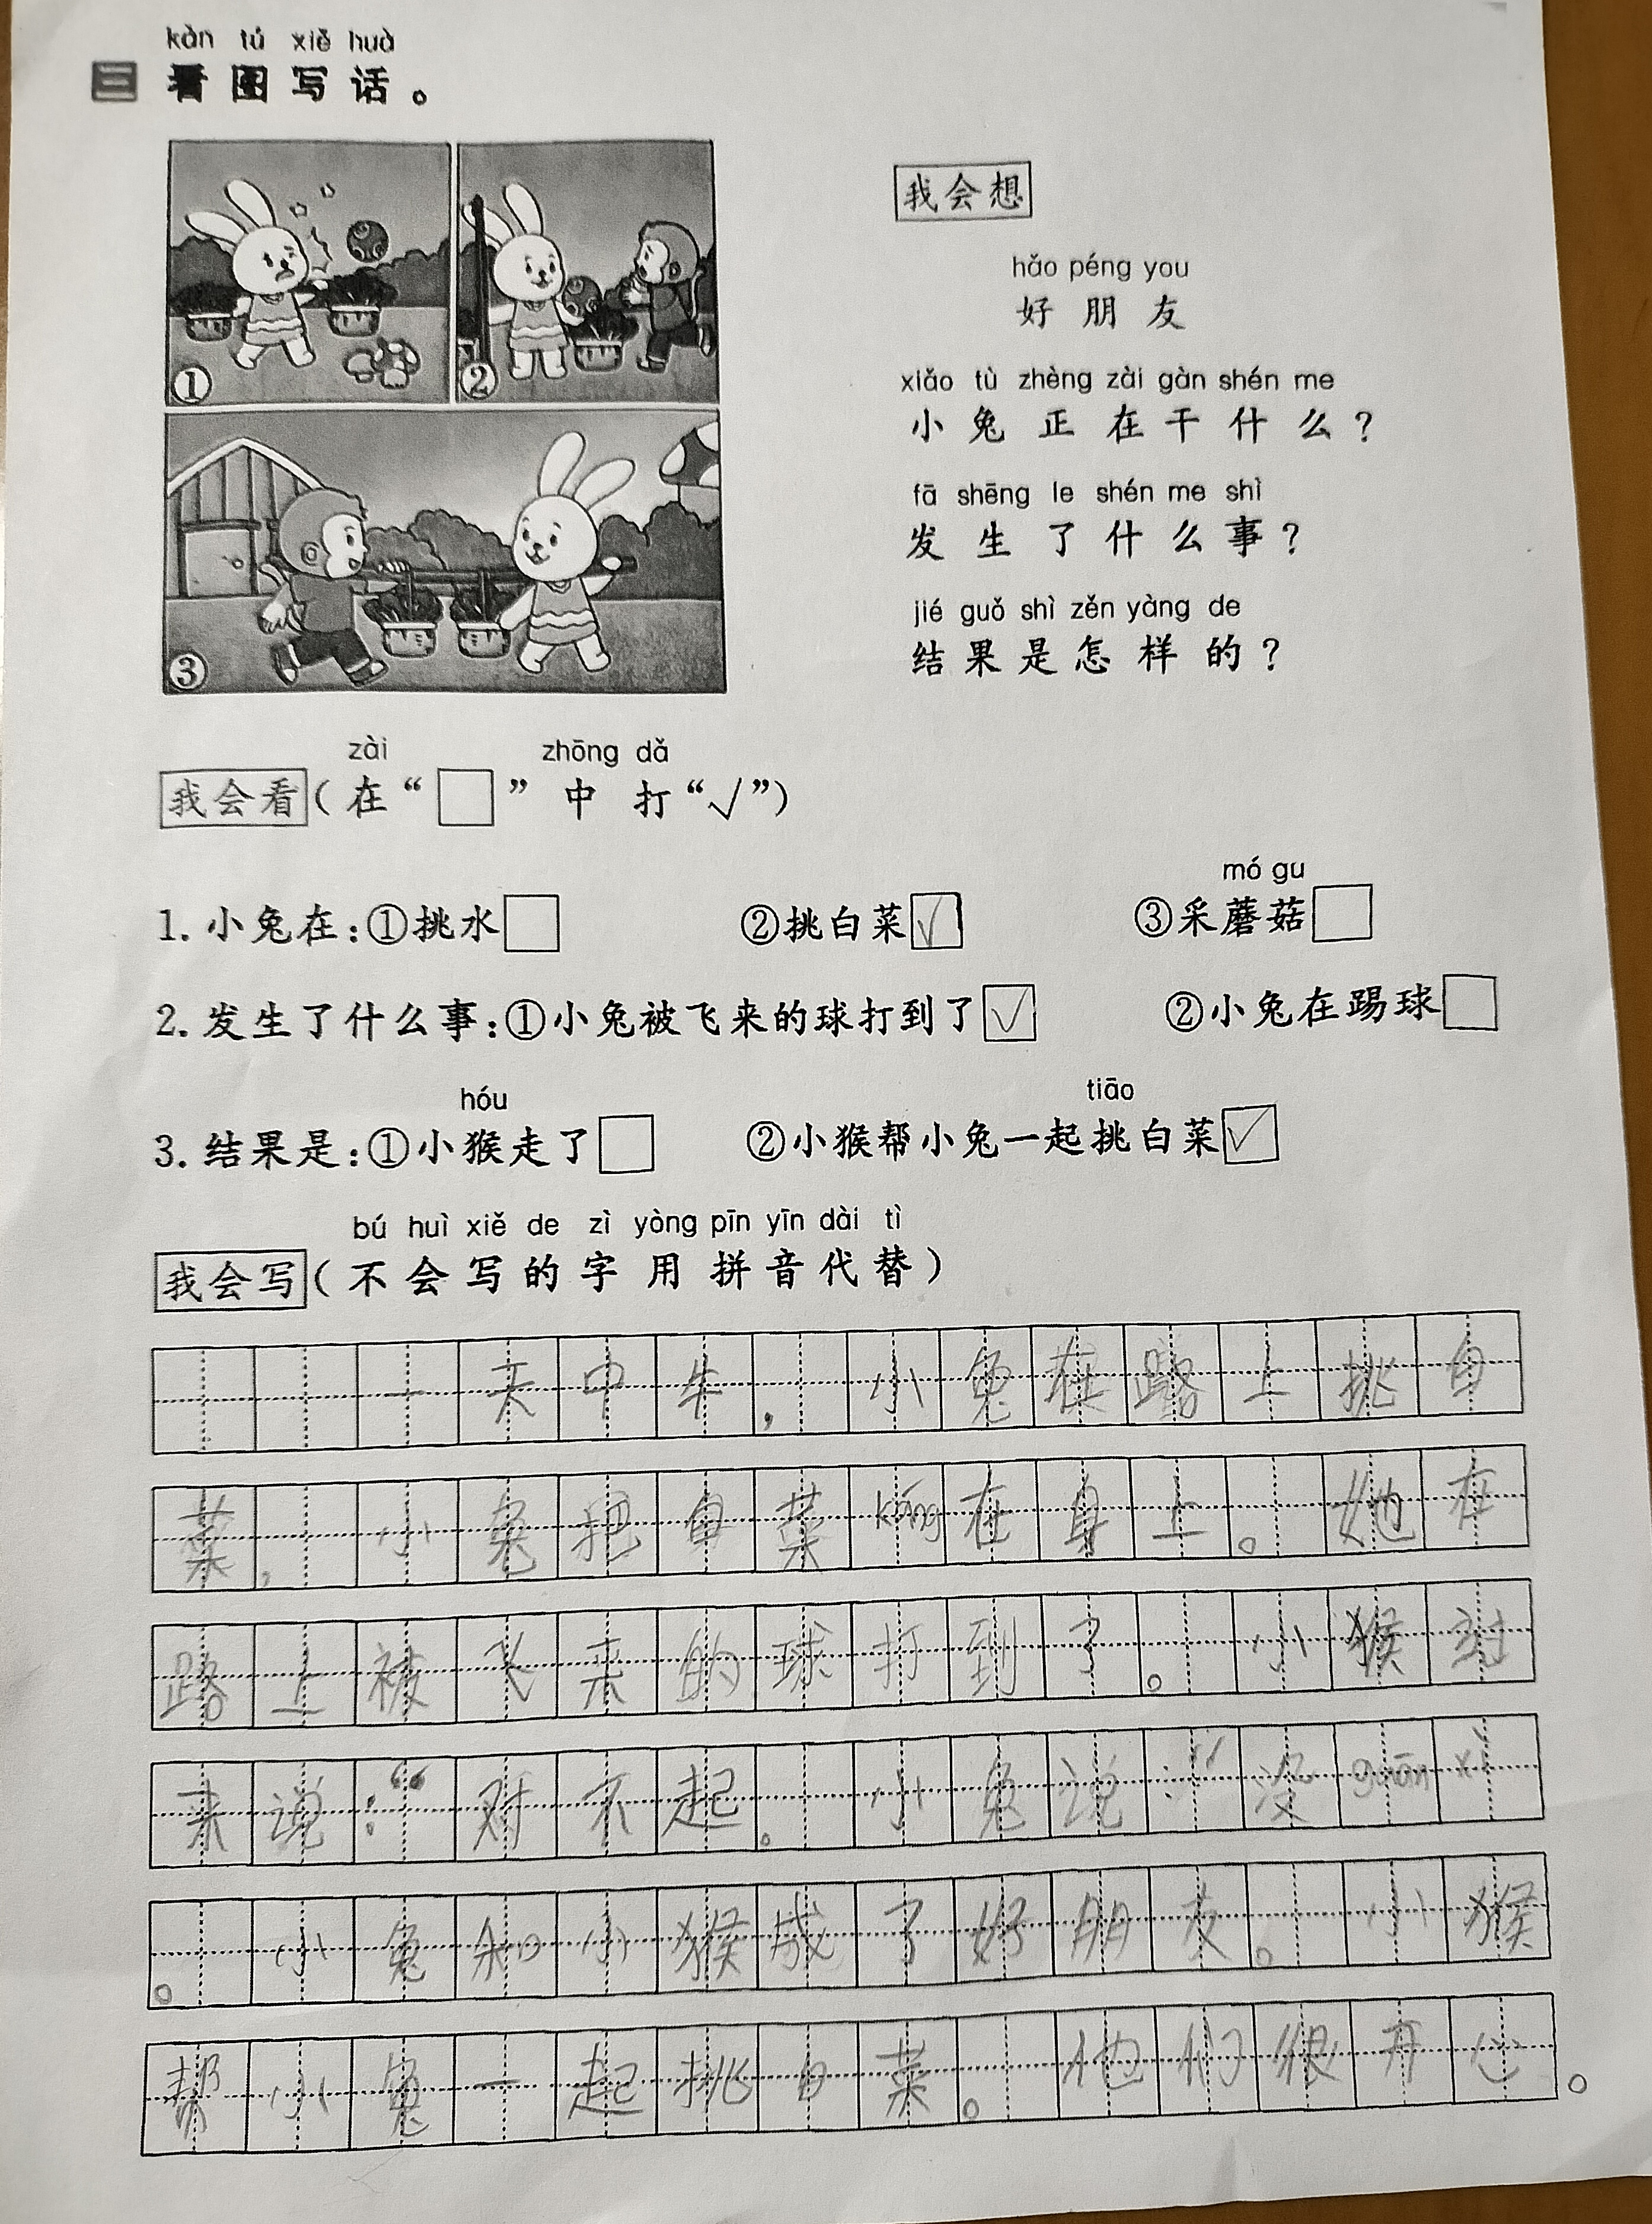 kàn tú xiě huà
三 看图写话。
①
②
③
我会想
hǎo péng you
好朋友
xiǎo tù zhèng zài gàn shén me
小兔正在干什么？
fā shēng le shén me shì
发生了什么事？
jié guǒ shì zěn yàng de
结果是怎样的？
zài zhōng dǎ
我会看(在“□”中打“√”)
mó gu
1.小兔在:①挑水□ ②挑白菜☑ ③采蘑菇□
2.发生了什么事:①小兔被飞来的球打到了☑ ②小兔在踢球□
hóu tiāo
3.结果是:①小猴走了□ ②小猴帮小兔一起挑白菜☑
bú huì xiě de zì yòng pīn yīn dài tì
我会写(不会写的字用拼音代替)
一天中午,小兔在路上挑白
菜,小兔把白菜káng在身上。她在
路上被飞来的球打到了。小猴过
来说:“对不起。小兔说:“没guān xi
。小兔和小猴成了好朋友。小猴
帮小兔一起挑白菜。他们很开心。